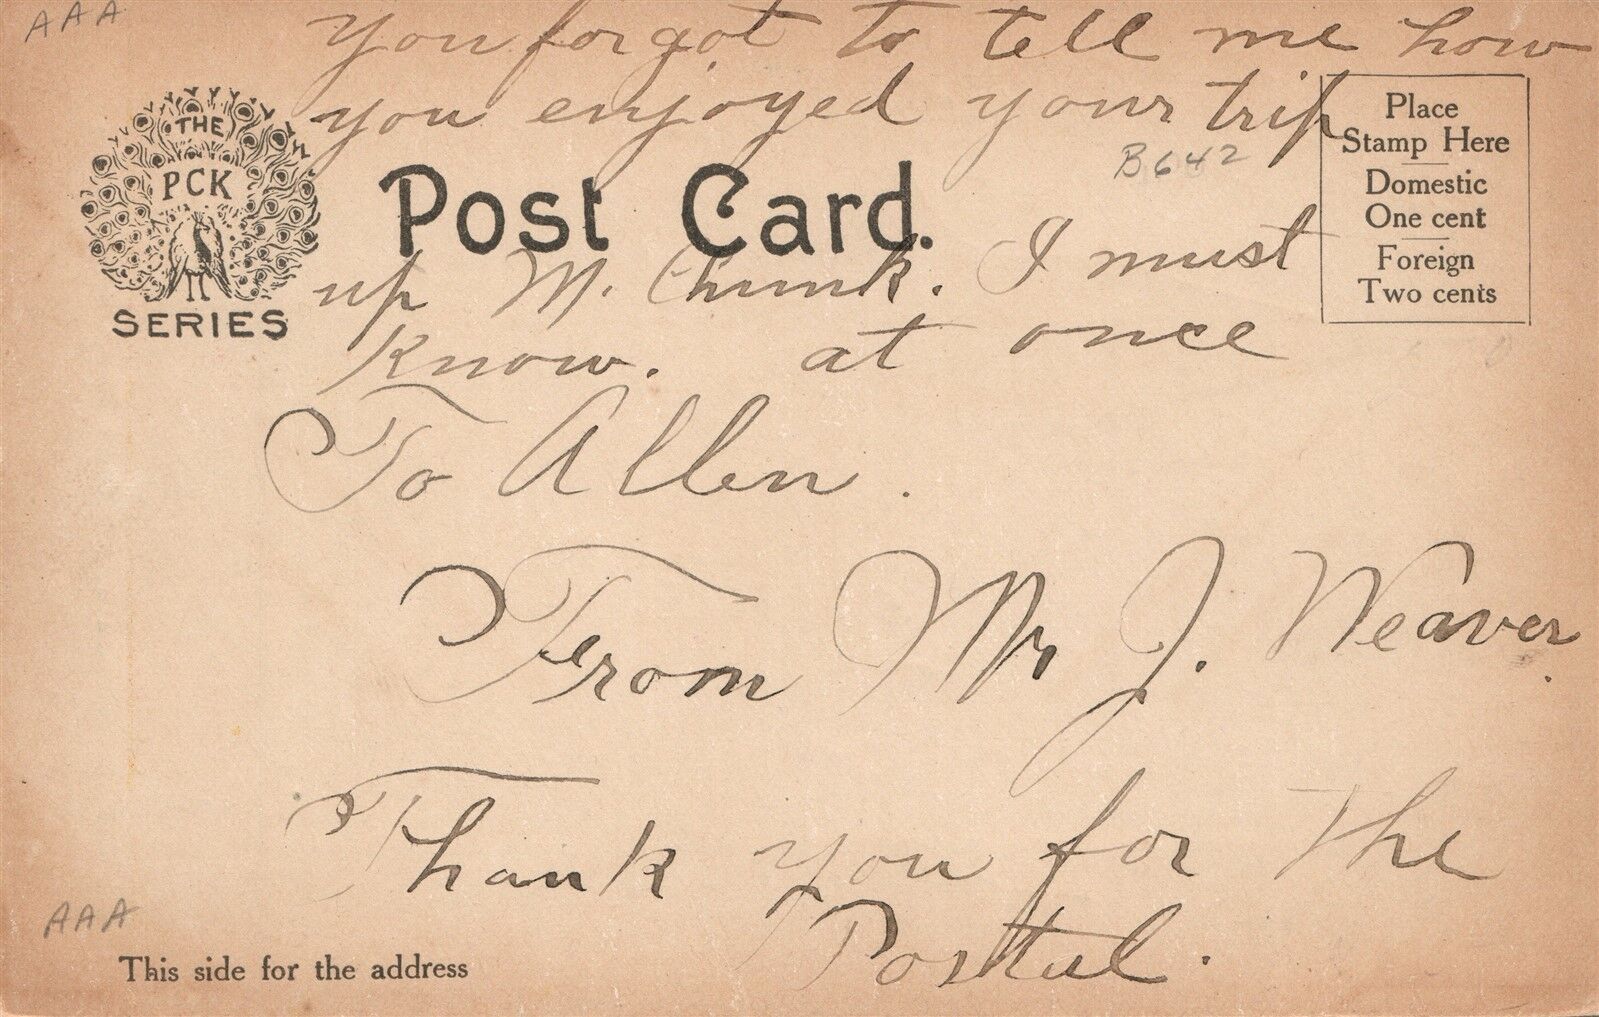 AAA
you forgot to tell me how
you enjoyed your trip
B642
THE
PCK
SERIES
Post Card.
Place
Stamp Here
Domestic
One cent
Foreign
Two cents
up M. Chunk. I must
know. at once
To Allen.
From Mr J. Weaver.
Thank you for the
Postal.
AAA
This side for the address